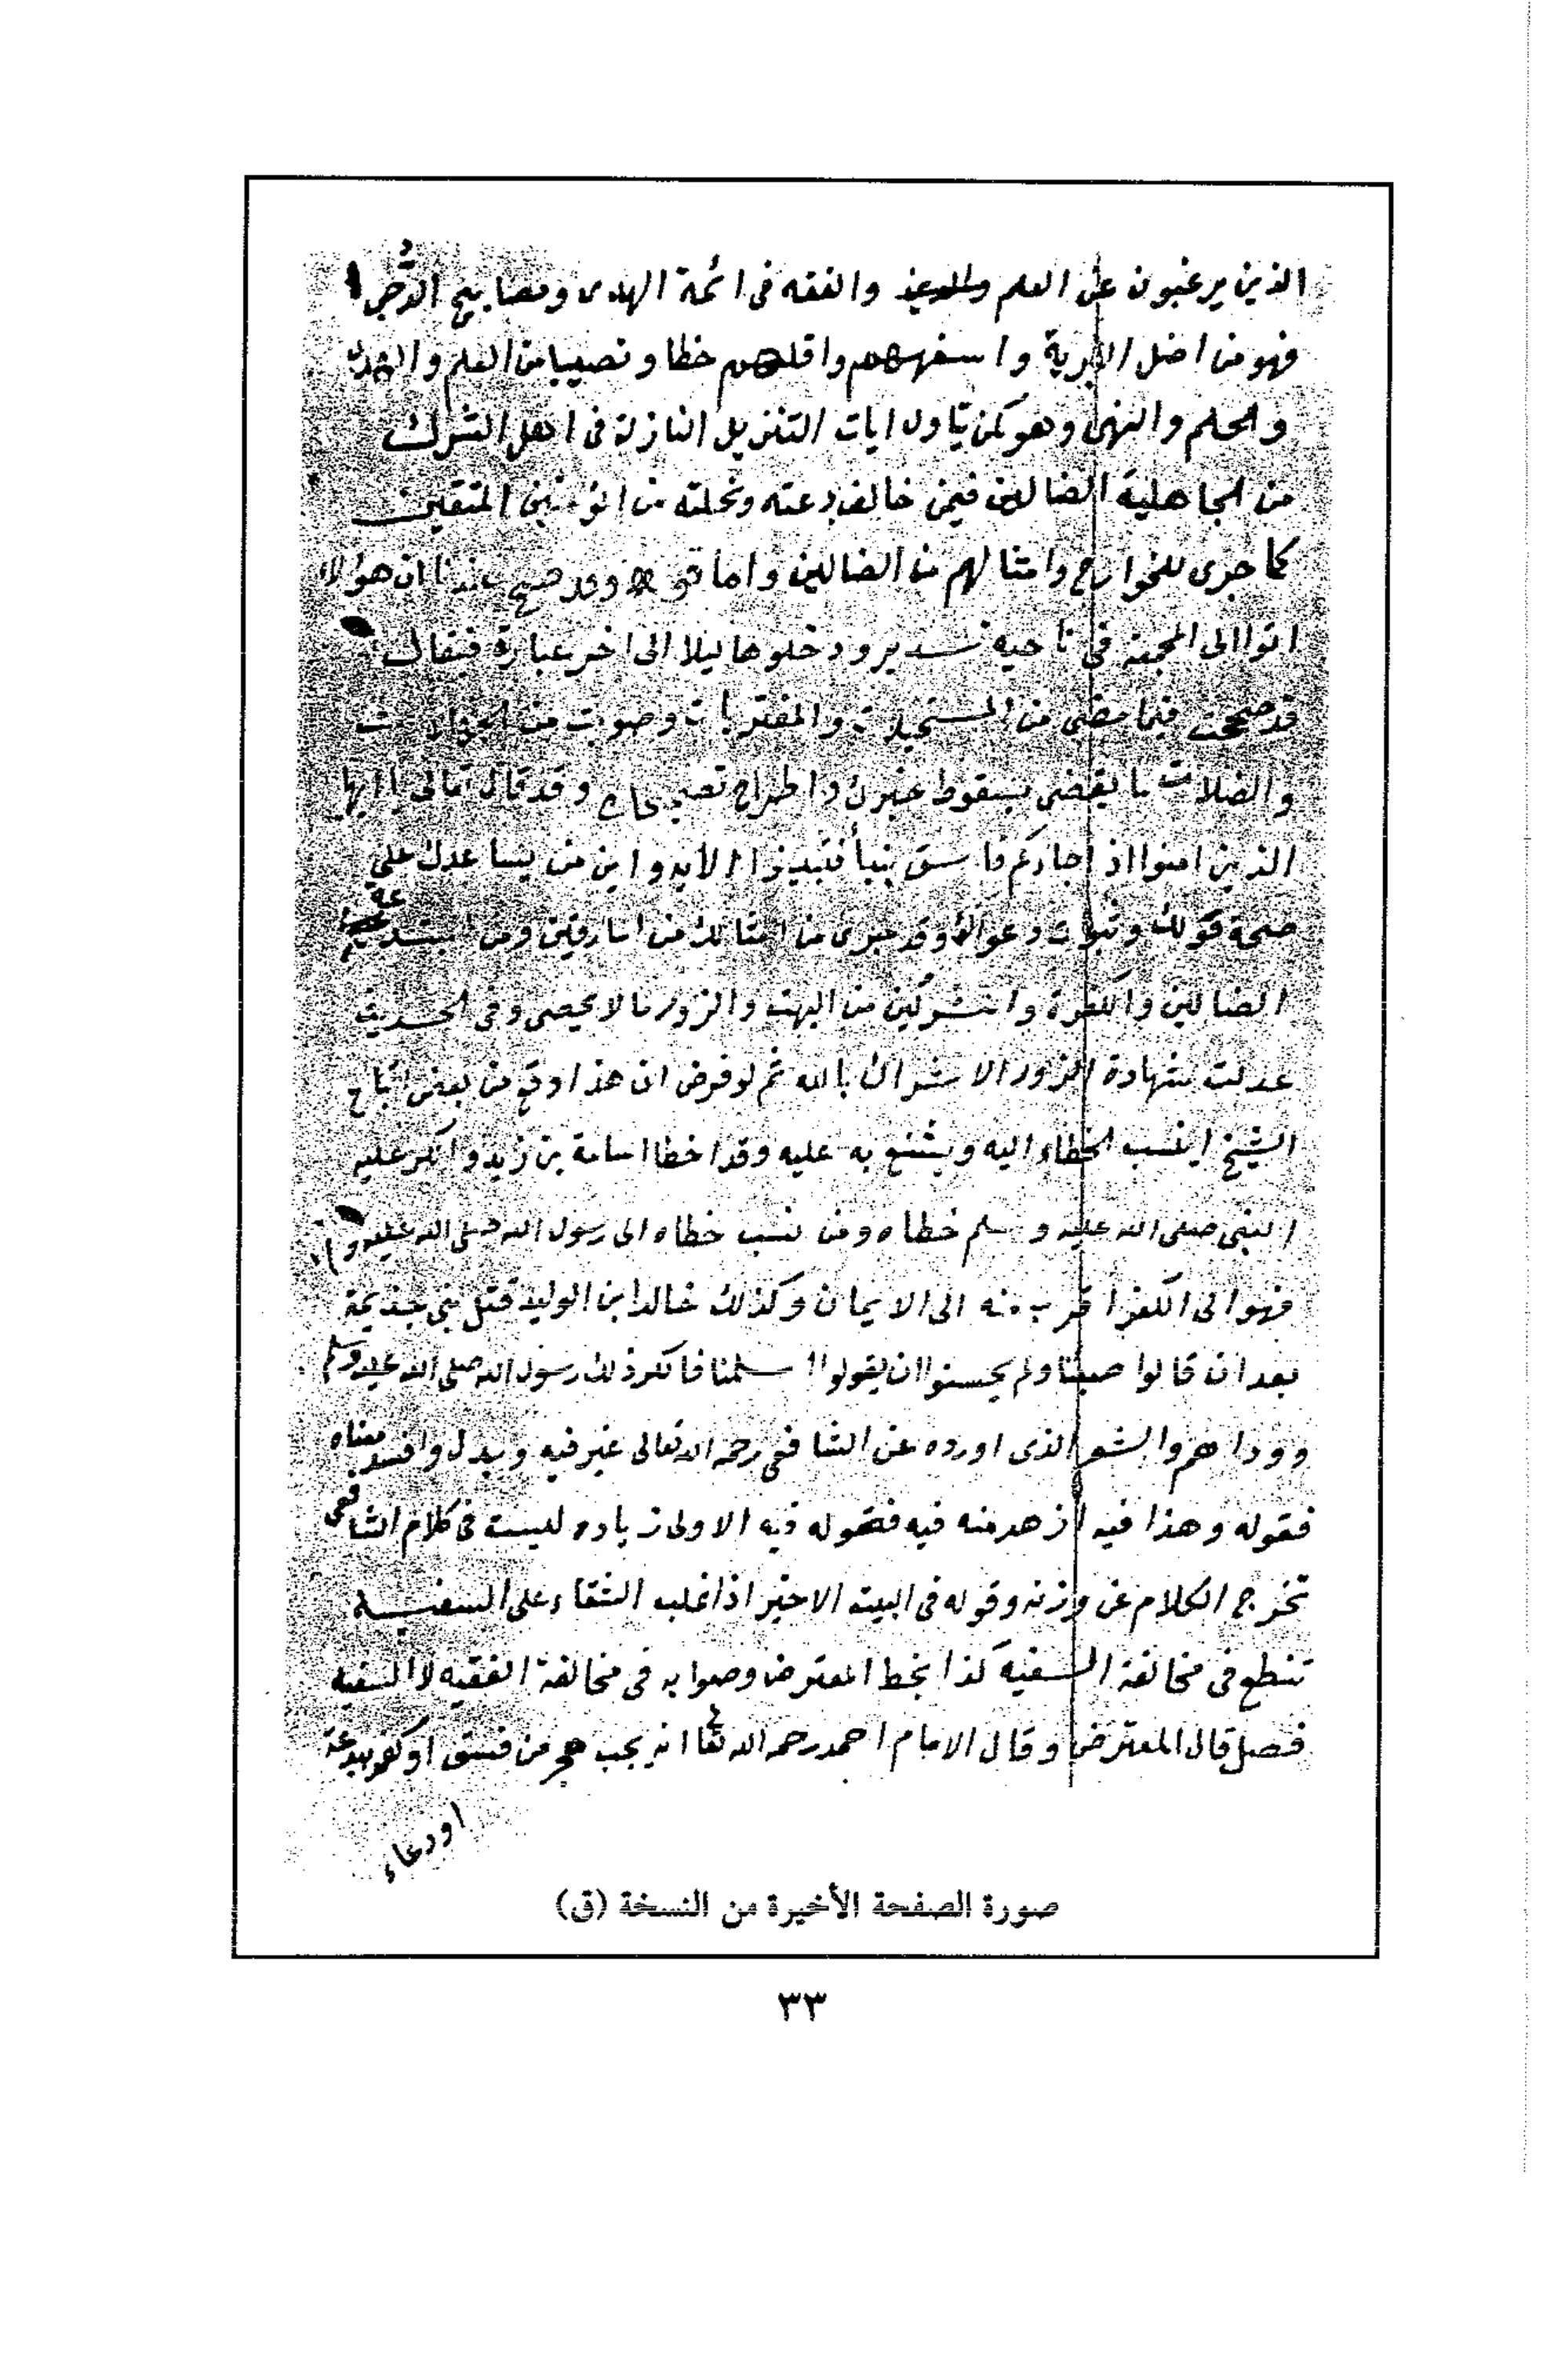 الذين يرغبون عن العلم والفقه فى ائمة الهدى ومصابيح الدُّجى
فهو من اضل البرية واسفههم واقلهم حظا ونصيبا من العلم والهدى
والحلم والنهى وهو كمن يتاول ايات التنزيل النازلة فى اهل الشرك
من الجاهلية الضالين فيمن خالف بدعته ونحلته من المؤمنين المتقين
كما جرى للخوارج وامثالهم من الضالين واما قوله وقد صح عندنا ان هؤلاء
اتوا الى المجمعة فى ناحية سدير ودخلوها ليلا الى اخر عبارة فيقال
قد صححت فيما مضى من المستحيلات والمفتريات وصوبت من
والضلالات ما يقضى بسقوط خبرك واطراح تصحيحك وقد قال تعالى ياايها
الذين امنوا اذ اجاءكم فاسق بنبأ فتبينوا الايه واين من يساعدك على
صحة قولك وثبوت دعواك وقد جرى من امثالك من المارقين ومن
الضالين والكفرة والمشركين من البهت والزور ما لا يحصى وفى الحديث
عدلت شهادة الزور الاشراك بالله ثم لو فرض ان هذا وقع من بعض اتباع
الشيخ اينسب الخطاء اليه ويشنع به عليه وقد اخطا اسامة بن زيد وانكر عليه
النبى صلى الله عليه وسلم خطاه ومن نسب خطاه الى رسول الله صلى الله عليه و
فهو الى الكفر اقرب منه الى الايمان وكذلك خالد ابن الوليد قتل بني جذيمة
بعد ان قالوا صبئنا ولم يحسنوا ان يقولوا اسلمنا فانكر ذلك رسول الله صلى الله عليه وسلم
ووداهم والشعر الذى اورده عن الشافعى رحمه الله تعالى غير فيه وبدل وافسد معناه
فقوله وهذا فيه ازهد منه فيه فقوله فيه الاولى زياده ليست فى كلام الشافعى
تخرج الكلام عن وزنه وقوله فى البيت الاخير اذا غلب الشقاء على السفيه
تنطع فى مخالفة السفيه كذا بخط المعترض وصوابه فى مخالفة الفقيه لا السفيه
فصل قال المعترض وقال الامام احمد رحمه الله تعا انه يجب هجر من فسق او كفر ببدعة
اودعاء
صورة الصفحة الأخيرة من النسخة (ق)
٣٣